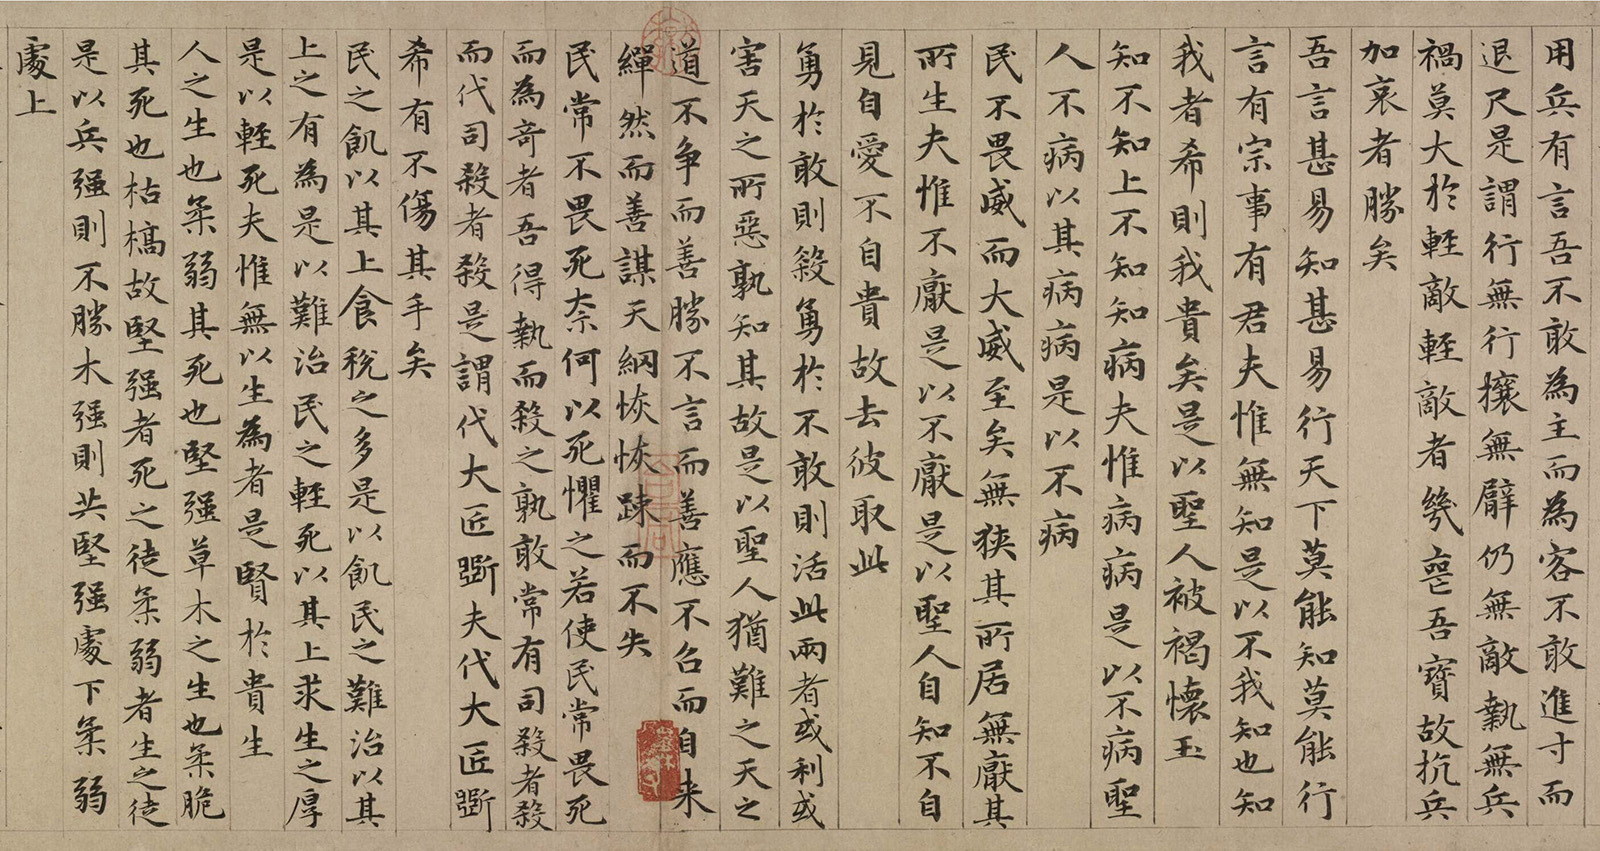 用兵有言吾不敢為主而為客不敢進寸而
退尺是謂行無行攘無臂仍無敵執無兵
禍莫大於輕敵輕敵者幾喪吾寶故抗兵
加哀者勝矣
吾言甚易知甚易行天下莫能知莫能行
言有宗事有君夫惟無知是以不我知也知
我者希則我貴矣是以聖人被褐懷玉
知不知上不知知病夫惟病病是以不病聖
人不病以其病病是以不病
民不畏威而大威至矣無狹其所居無厭其
所生夫惟不厭是以不厭是以聖人自知不自
見自愛不自貴故去彼取此
勇於敢則殺勇於不敢則活此兩者或利或
害天之所惡孰知其故是以聖人猶難之天之
道不爭而善勝不言而善應不召而自来
繟然而善謀天網恢恢踈而不失
民常不畏死奈何以死懼之若使民常畏死
而為奇者吾得執而殺之孰敢常有司殺者殺
而代司殺者殺是謂代大匠斲夫代大匠斲
希有不傷其手矣
民之飢以其上食稅之多是以飢民之難治以其
上之有為是以難治民之輕死以其上求生之厚
是以輕死夫惟無以生為者是賢於貴生
人之生也柔弱其死也堅强草木之生也柔脆
其死也枯槁故堅强者死之徒柔弱者生之徒
是以兵强則不勝木强則共堅强處下柔弱
處上